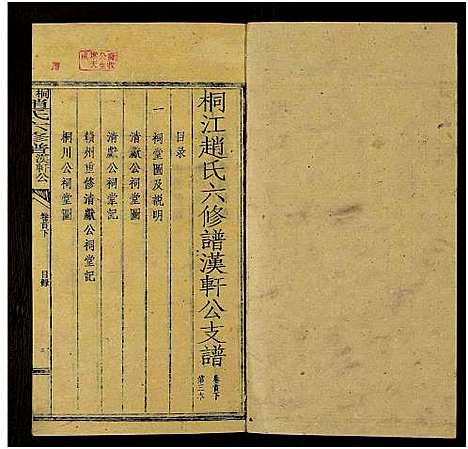 桐江趙氏六修譜漢軒公支譜
卷首下
目录
一 祠堂圖及說明
清獻公祠堂圖
清獻公堂記
贛州重修清獻公祠堂記
桐川公祠堂圖
桐江趙氏六修譜漢軒公
卷首下
目錄